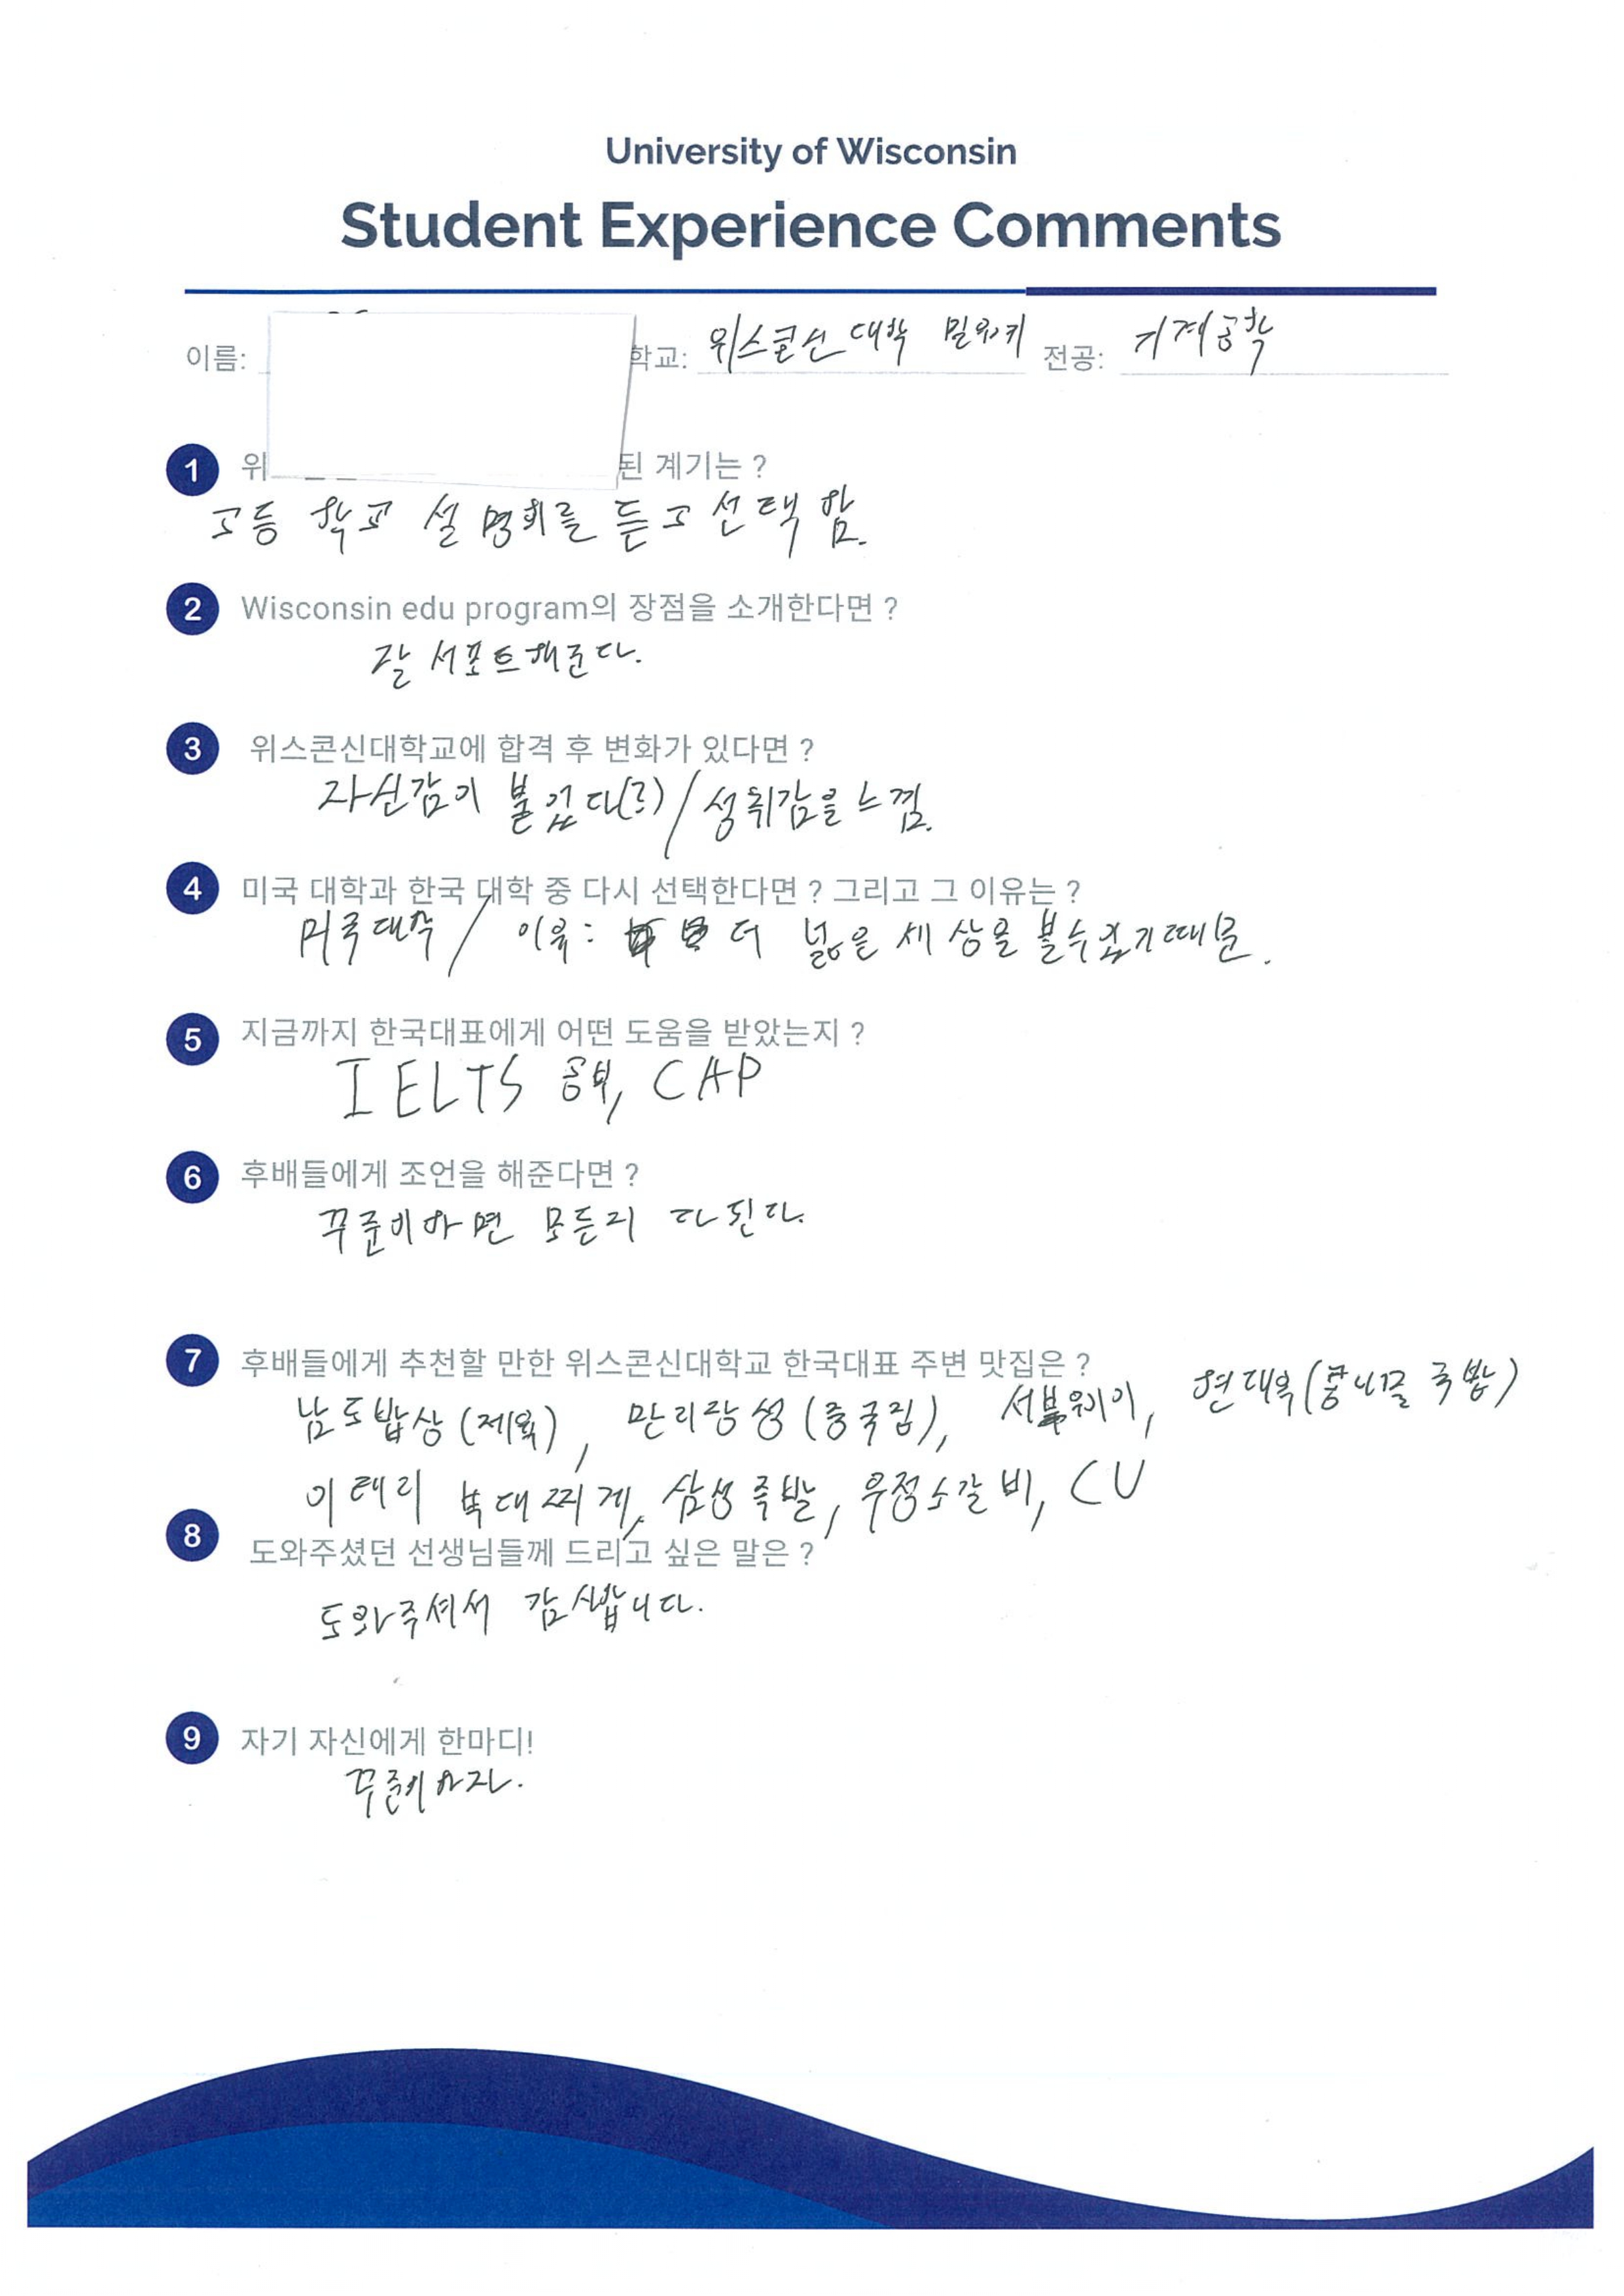 University of Wisconsin
Student Experience Comments
이름: 학교: 위스콘신 대학 밀워키 전공: 기계공학
1 위 된 계기는 ?
고등 학교 설명회를 듣고 선택함.
2 Wisconsin edu program의 장점을 소개한다면 ?
잘 서포트해준다.
3 위스콘신대학교에 합격 후 변화가 있다면 ?
자신감이 붙었다(?) / 성취감을 느낌.
4 미국 대학과 한국 대학 중 다시 선택한다면 ? 그리고 그 이유는 ?
미국대학 / 이유: 더 넓은 세상을 볼수있기때문.
5 지금까지 한국대표에게 어떤 도움을 받았는지 ?
IELTS 공부, CAP
6 후배들에게 조언을 해준다면 ?
꾸준히하면 모든지 다된다.
7 후배들에게 추천할 만한 위스콘신대학교 한국대표 주변 맛집은 ?
남도밥상(제육), 만리장성(중국집), 서브웨이, 현대옥(콩나물 국밥)
이태리 부대찌개, 삼성족발, 우정소갈비, CU
8 도와주셨던 선생님들께 드리고 싶은 말은 ?
도와주셔서 감사합니다.
9 자기 자신에게 한마디!
꾸준히하자.